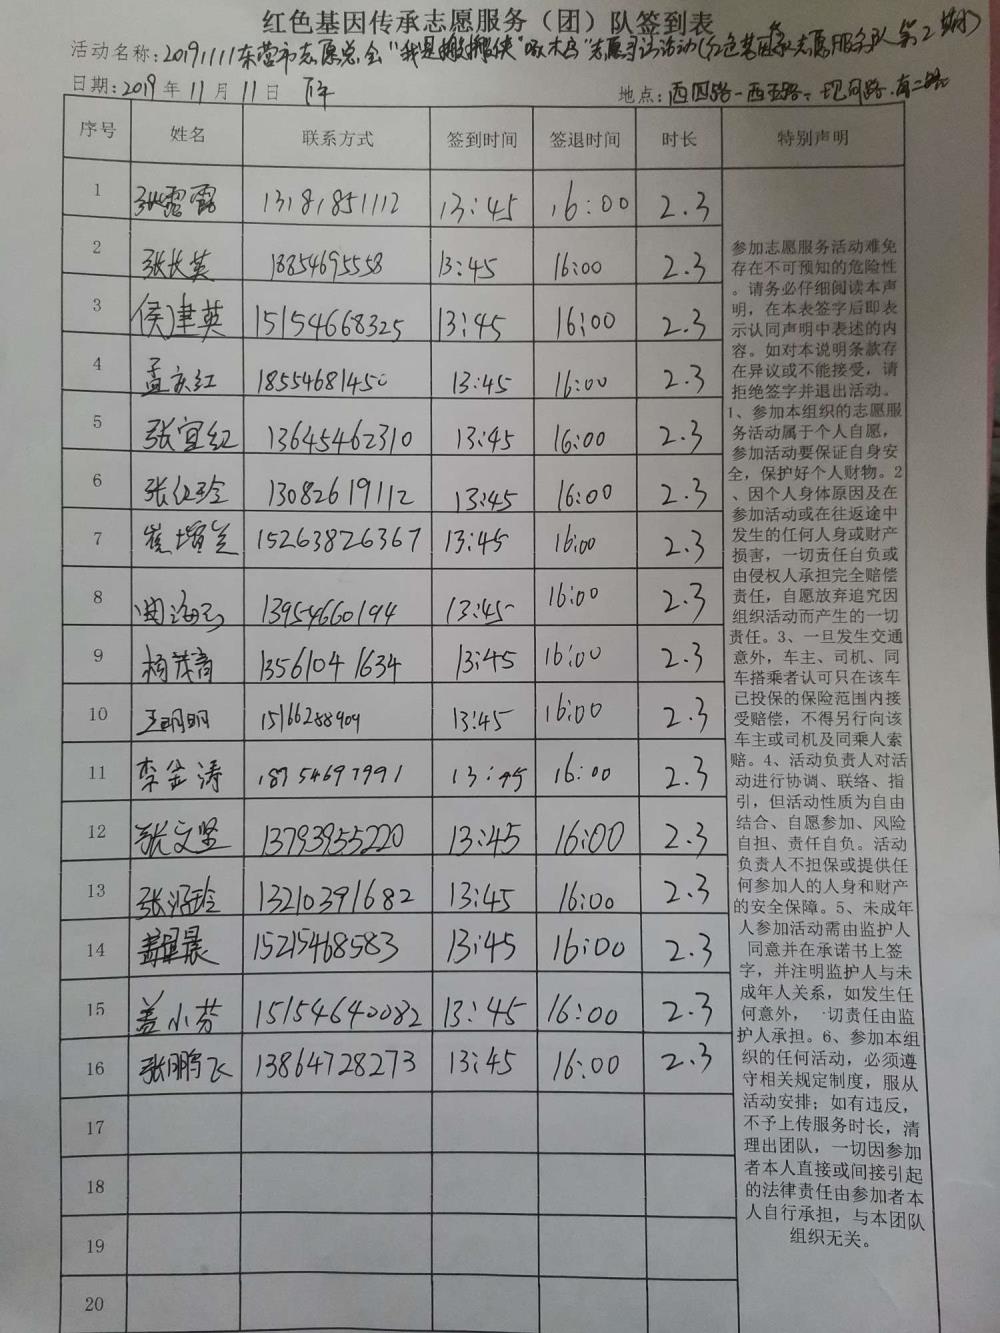 红色基因传承志愿服务（团）队签到表
活动名称：20191111东营市志愿总会“我是搬搬侠”啄木鸟”志愿寻访活动（红色基因传承志愿服务队第2期）
日期：2019年11月11日 下午
地点：西四路-西五路、
序号 姓名 联系方式 签到时间 签退时间 时长 特别声明
1 张露露 13181851112 13:45 16:00 2.3
2 张长英 18854695558 13:45 16:00 2.3
3 侯建英 15154668325 13:45 16:00 2.3
4 孟庆红 18554681450 13:45 16:00 2.3
5 张宜红 13645462310 13:45 16:00 2.3
6 张仪玲 13082619112 13:45 16:00 2.3
7 崔增兰 15263826367 13:45 16:00 2.3
8 周海 13954660194 13:45 16:00 2.3
9 杨茂青 13561041634 13:45 16:00 2.3
10 王明明 15166288909 13:45 16:00 2.3
11 李金涛 18754697991 13:45 16:00 2.3
12 张文坚 13793955220 13:45 16:00 2.3
13 张冯玲 13210391682 13:45 16:00 2.3
14 盖星晨 15215468583 13:45 16:00 2.3
15 盖小芬 15154640082 13:45 16:00 2.3
16 张鹏飞 13864728273 13:45 16:00 2.3
17
18
19
20
参加志愿服务活动难免
存在不可预知的危险性
。请务必仔细阅读本声
明，在本表签字后即表
示认同声明中表述的内
容。如对本说明条款存
在异议或不能接受，请
拒绝签字并退出活动。
1、参加本组织的志愿服
务活动属于个人自愿，
参加活动要保证自身安
全，保护好个人财物。2
、因个人身体原因及在
参加活动或在往返途中
发生的任何人身或财产
损害，一切责任自负或
由侵权人承担完全赔偿
责任，自愿放弃追究因
组织活动而产生的一切
责任。3、一旦发生交通
意外，车主、司机、同
车搭乘者认可只在该车
已投保的保险范围内接
受赔偿，不得另行向该
车主或司机及同乘人索
赔。4、活动负责人对活
动进行协调、联络、指
引，但活动性质为自由
结合、自愿参加、风险
自担、责任自负。活动
负责人不担保或提供任
何参加人的人身和财产
的安全保障。5、未成年
人参加活动需由监护人
同意并在承诺书上签
字，并注明监护人与未
成年人关系，如发生任
何意外，一切责任由监
护人承担。6、参加本组
织的任何活动，必须遵
守相关规定制度，服从
活动安排；如有违反，
不予上传服务时长，清
理出团队，一切因参加
者本人直接或间接引起
的法律责任由参加者本
人自行承担，与本团队
组织无关。